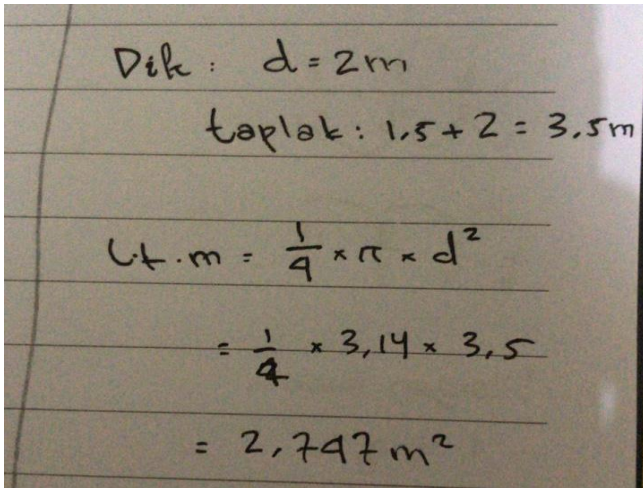 Dik : d = 2m
taplak : 1.5 + 2 = 3.5m
L.t.m = 1/4 × π × d²
= 1/4 × 3,14 × 3,5
= 2,747 m²